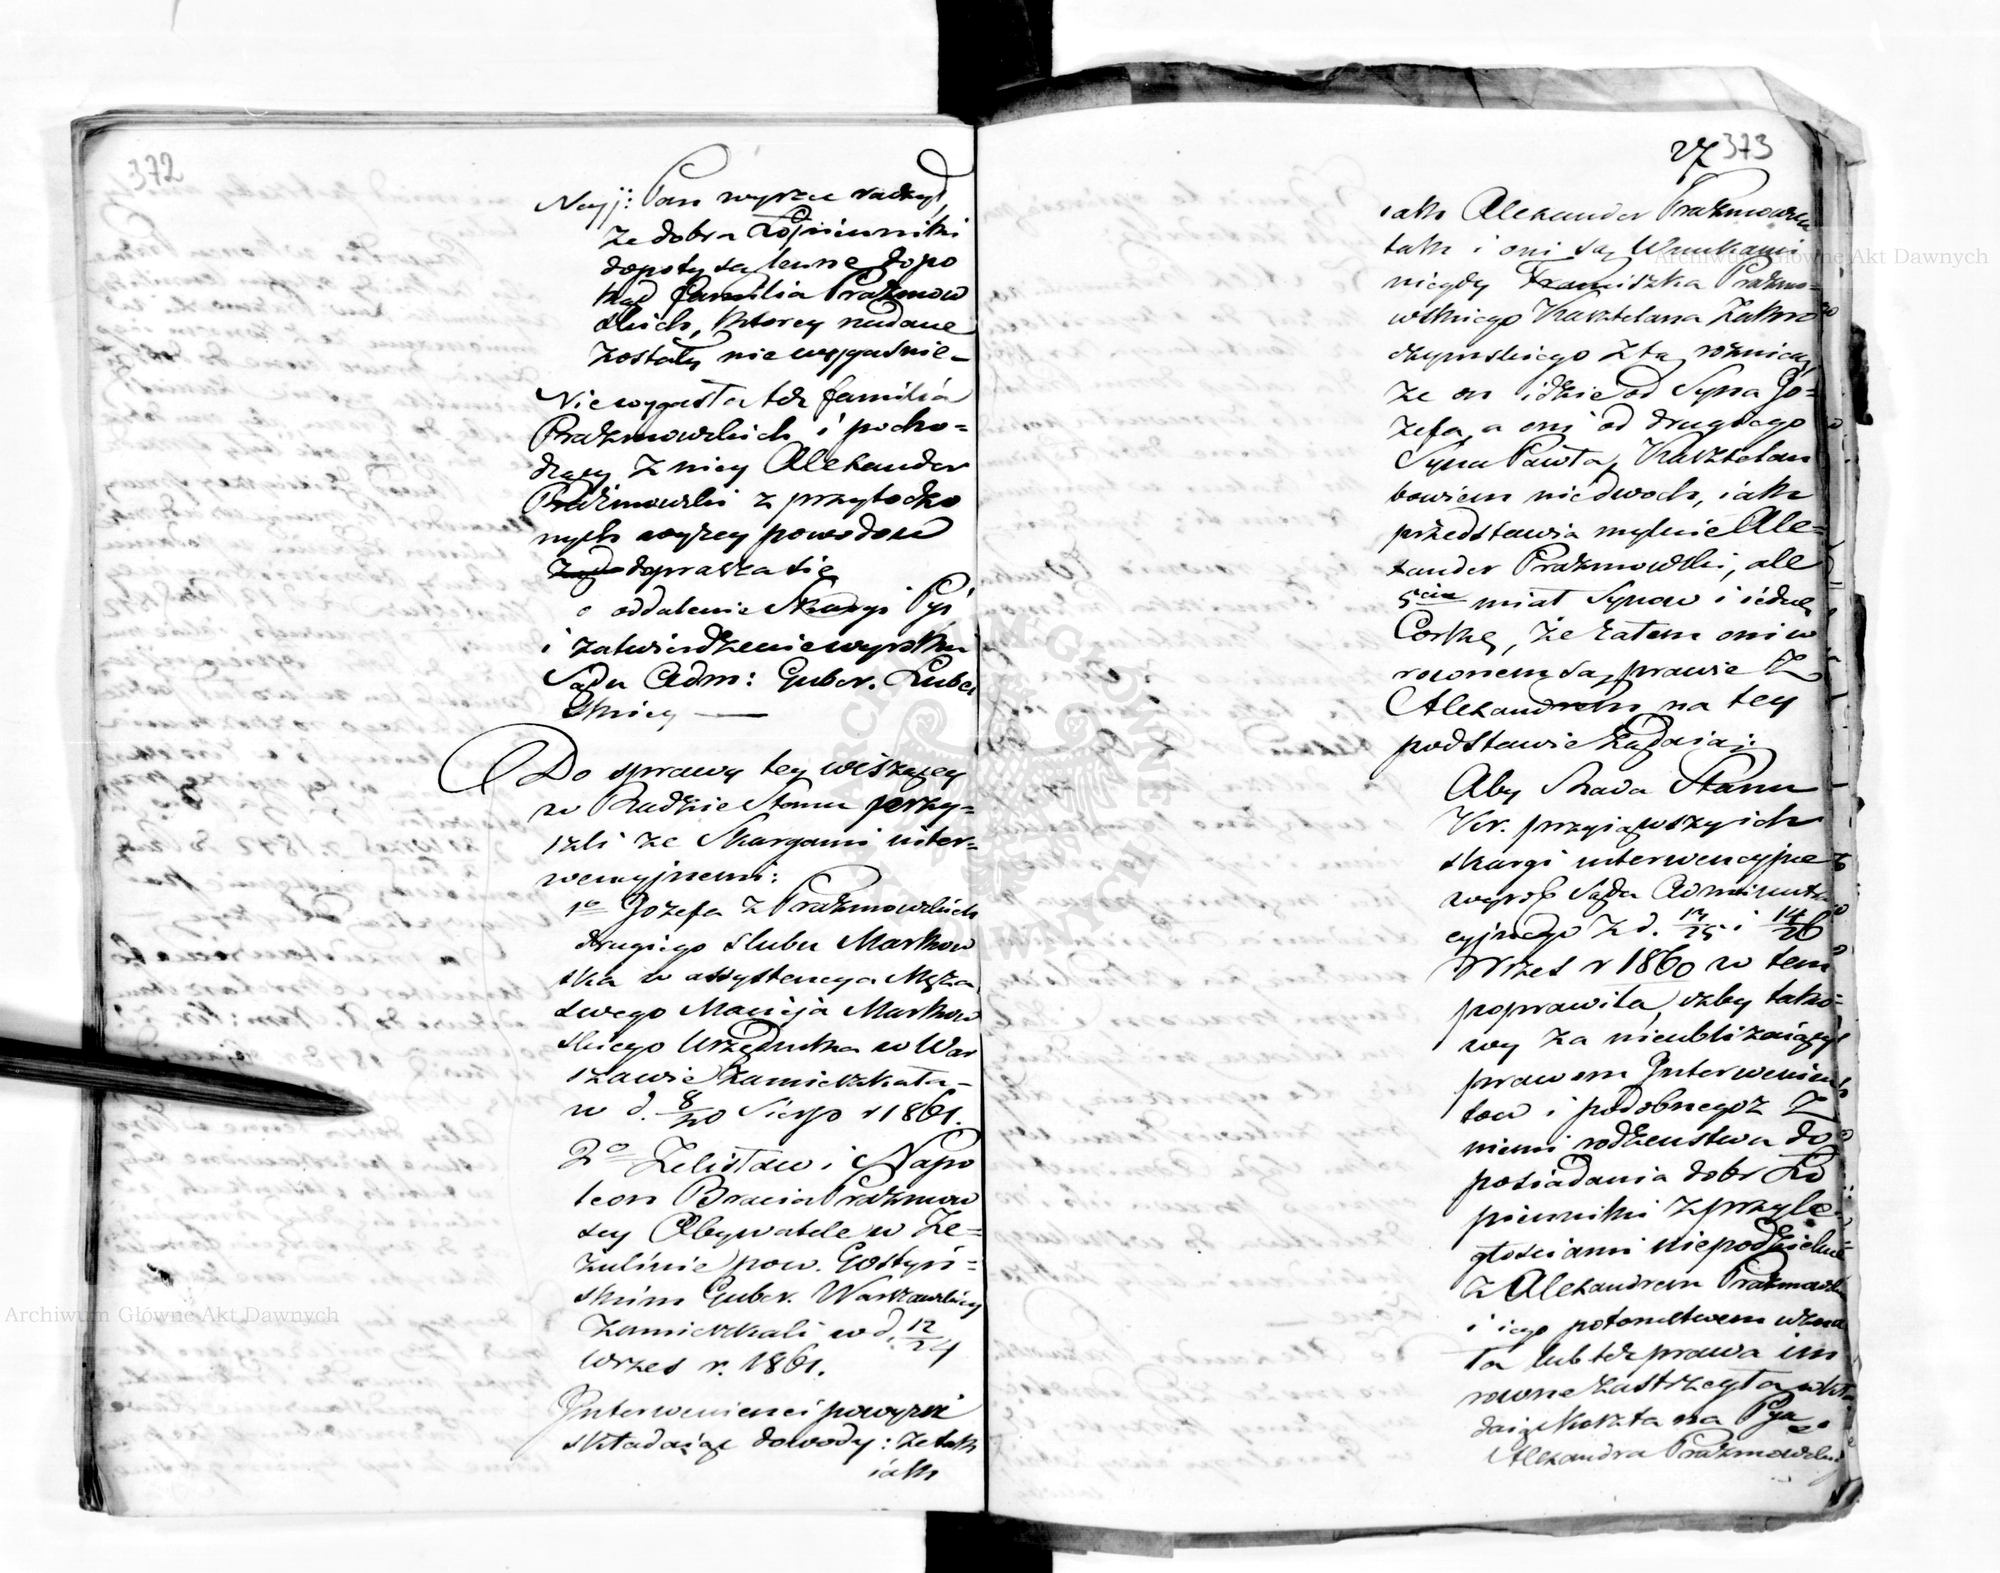 372
Nayj: Pan wyrzec raczył,
że dobra Łopiennik
dopoty są lenne dopo
kąd familia Prażmow
skich, ktorey nadane
zostały nie wygaśnie –
Nie wygasła też familia
Prażmowskich i pocho=
dzący z niey Alexander
Prażmowski z przytoczo
nych wyżey powodow
doprasza się
o oddalenie Skargi
i zatwierdzenie wyroku
Sądu Adm: Guber. Lubel
skiey —
Do sprawy tey wiszącey
w Radzie Stanu przy=
szli ze Skargami inter=
wencyjnemi:
1o Jozefa z Prażmowskich
drugiego slubu Markow
ska w assystencyi Męża
swego Macieja Markow
skiego Urzędnika w War
szawie zamieszkała –
w d. 8/20 Sierp r 1861.
2o Zelisław i Napo
leon Bracia Prażmow
scy Obywatele w Że=
Gostyń=
skim Guber. Warszawskiey
zamieszkali w d. 12/24
Wrzes r. 1861.
Interwenienci powyżsi
składając dowody: że tak
iak
27 373
iak Alexander Prażmowski
tak i oni są Wnukami
niegdy Franciszka Prażmo=
wskiego Kasztelana Zakro
czymskiego z tą rożnicą,
że on idzie od Syna Jo=
zefa, a oni od drugiego
Syna Pawła, Kasztelan
bowiem nie dwoch, iak
przedstawia mylnie Ale=
xander Prażmowski, ale
5ciu miał Synow i iednę
Corkę, że zatem oni w
rownem są prawie z
Alexandrem na tey
podstawie żądaią:
Aby Rada Stanu
Kr. przyiąwszy ich
skargi interwencyjne
wyrok Sądu Administra
cyjnego z d. 13/25 i 14/26
Wrzes r 1860 w tem
poprawiła, żeby tako=
wy za nieubliżaiący
prawom Interwenien
tow i podobnegoż z
niemi rodzeństwa do
posiadania dobr Ło
piennik z przyle
głościami niepodzielnie
z Alexandrem Prażmowskim
i iego potomstwem uzna
ła lub też prawa im
rowne zastrzegła wkła
daiąc koszta na
Alexandra Prażmowskiego
Archiwum Główne Akt Dawnych
Archiwum Główne Akt Dawnych
ARCHIWUM GŁÓWNE AKT DAWNYCH